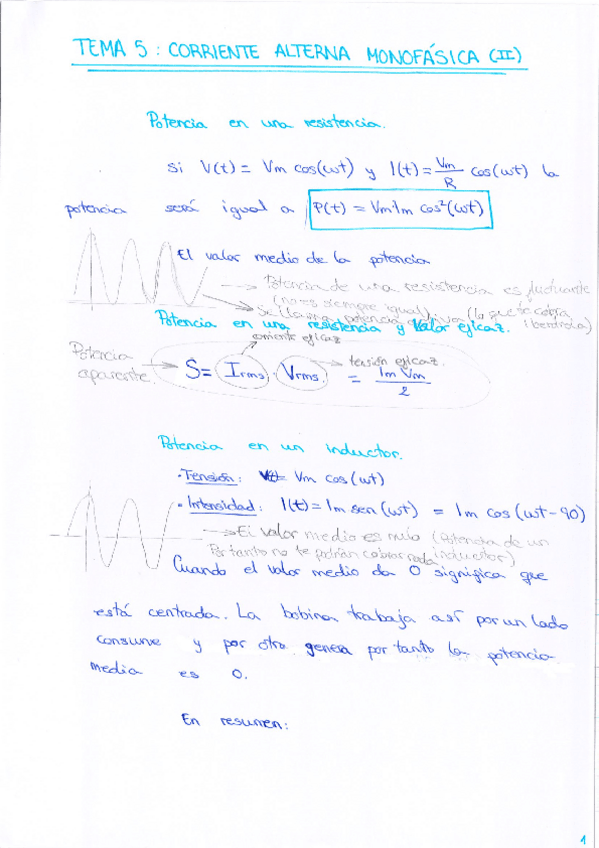 TEMA 5: CORRIENTE ALTERNA MONOFÁSICA (II)
Potencia en una resistencia.
Si V(t) = Vm cos(ωt) y I(t) = Vm/R cos(ωt) la
potencia será igual a P(t) = Vm·Im cos²(ωt)
El valor medio de la potencia
Potencia de una resistencia es fluctuante
(no es siempre igual)
Se llama potencia activa (la que te cobra
iberdrola)
Potencia en una resistencia y Valor eficaz.
corriente eficaz
Potencia
aparente.
S = Irms · Vrms = Im Vm / 2
tensión eficaz.
Potencia en un inductor.
· Tensión: Vm cos(ωt)
· Intensidad: I(t) = Im sen(ωt) = Im cos(ωt-90)
El valor medio es nulo (potencia de un
inductor)
Por tanto no te podrían cobrar nada
Cuando el valor medio da 0 significa que
está centrada. La bobina trabaja así por un lado
consume y por otro genera por tanto la potencia
media es 0.
En resumen:
1